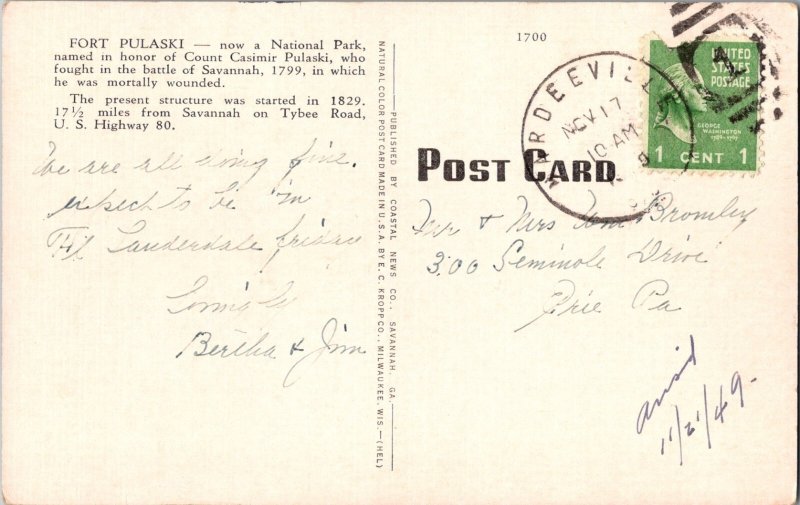 FORT PULASKI — now a National Park,
named in honor of Count Casimir Pulaski, who
fought in the battle of Savannah, 1799, in which
he was mortally wounded.
The present structure was started in 1829.
17½ miles from Savannah on Tybee Road,
U. S. Highway 80.
We are all doing fine.
expect to be in
Ft Lauderdale friday
Lovingly
Bertha & Jim
PUBLISHED BY COASTAL NEWS CO., SAVANNAH, GA.
NATURAL COLOR POST CARD MADE IN U.S.A. BY E. C. KROPP CO., MILWAUKEE, WIS.—(HEL)
1700
POST CARD
HARDEEVILLE
NOV 17
10 AM
UNITED
STATES
POSTAGE
GEORGE
WASHINGTON
1 CENT 1
Mr & Mrs Tom Bromley
300 Seminole Drive
Erie Pa
11/21/49